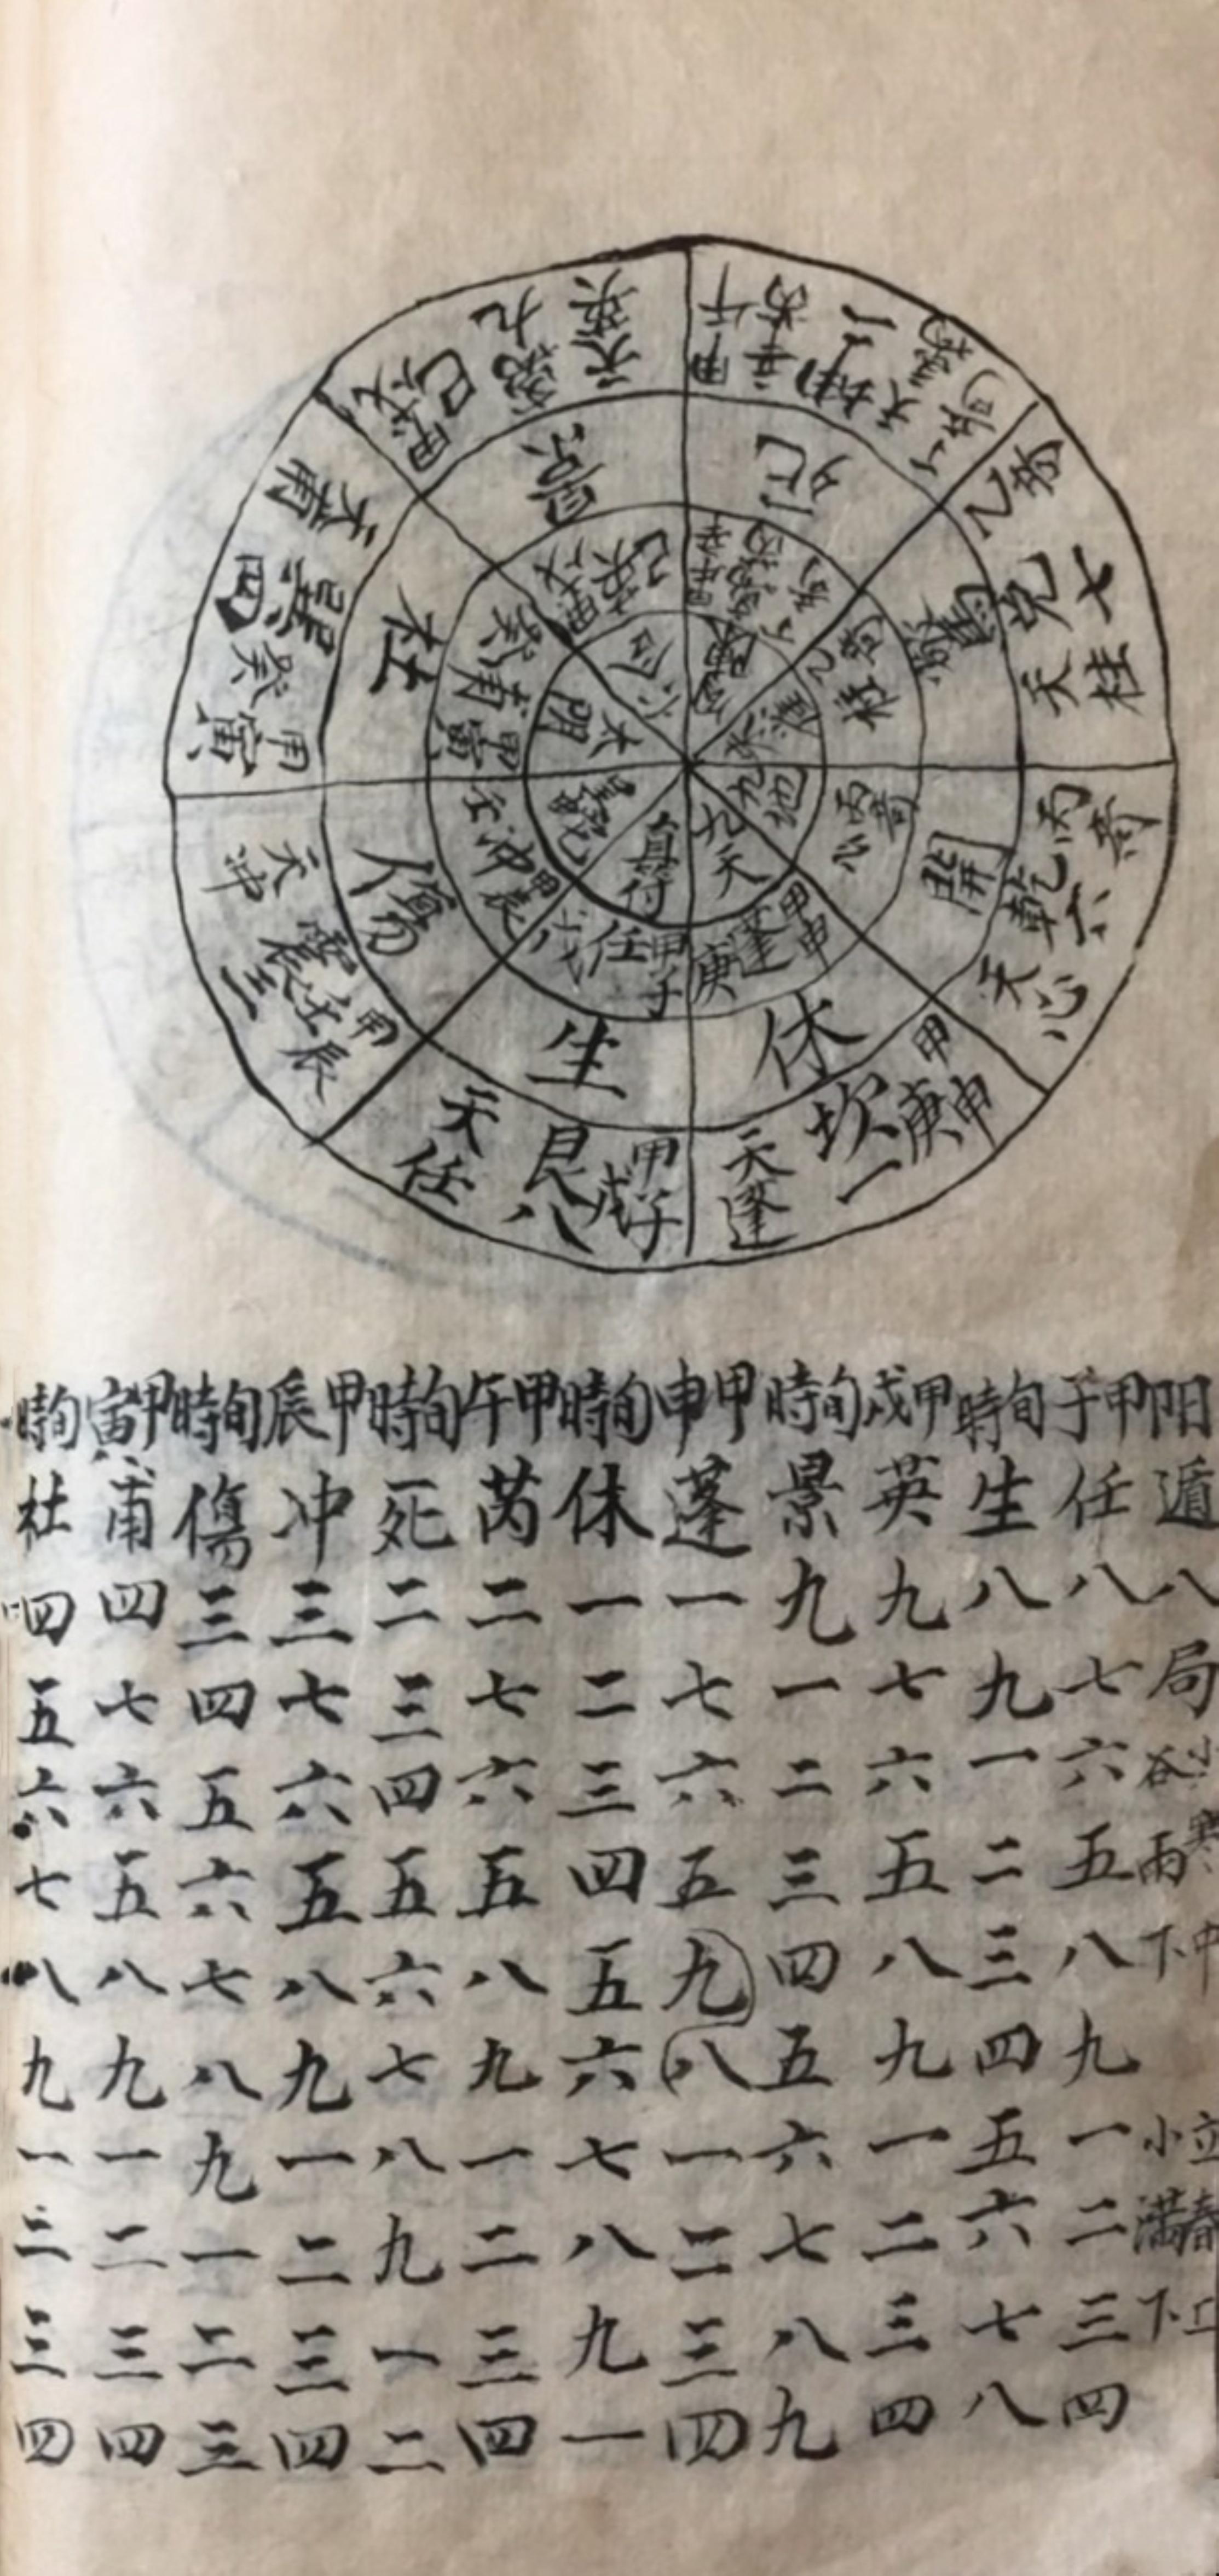 天英
離九
己
甲戌
甲午
辛
丙
天芮
坤二
乙奇
兌七
天柱
丙奇
乾六
天心
甲申
庚
坎一
天蓬
甲子
戊
艮八
天任
甲辰
壬
震三
天冲
甲寅
癸
巽四
天甫
景
死
驚
開
休
生
傷
杜
乙奇
柱
丙奇
心
甲申
蓬
庚
甲子
任
戊
甲辰
冲
壬
甲寅
甫
癸
甲戌
英
己
九地
九天
直符
太阴
六合
阳遁八局
小寒中
谷雨下
立春上
小满下
甲子旬時
任八七六五八九一二三四
生八九一二三四五六七八
甲戌旬時
英九七六五八九一二三四
景九一二三四五六七八九
甲申旬時
蓬一七六五九八一二三四
休一二三四五六七八九一
甲午旬時
芮二七六五八九一二三四
死二三四五六七八九一二
甲辰旬時
冲三七六五八九一二三四
傷三四五六七八九一二三
甲寅旬時
甫四七六五八九一二三四
杜四五六七八九一二三四